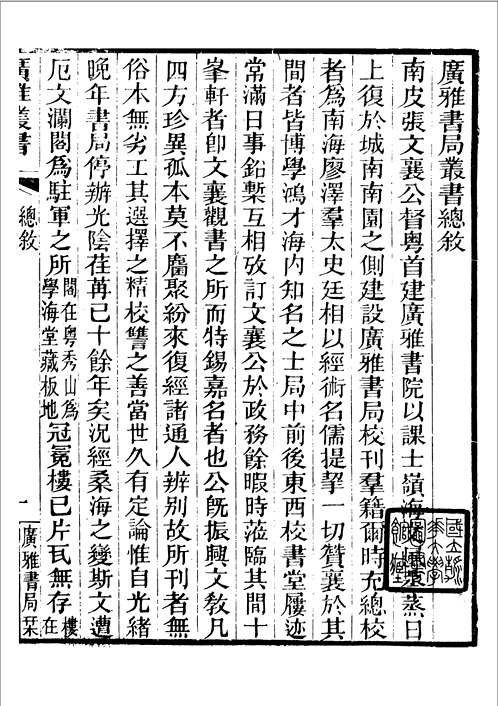 廣雅書局叢書總敘
南皮張文襄公督粵首建廣雅書院以課士嶺海蒸日
上復於城南南園之側建設廣雅書局校刊羣籍爾時充總校
者爲南海廖澤羣太史廷相以經術名儒提挈一切贊襄於其
間者皆博學鴻才海內知名之士局中前後東西校書堂屨迹
常滿日事鉛槧互相攷訂文襄公於政務餘暇時蒞臨其間十
峯軒者卽文襄觀書之所而特錫嘉名者也公旣振興文敎凡
四方珍異孤本莫不麕聚紛來復經諸通人辨別故所刊者無
俗本無劣工其選擇之精校讐之善當世久有定論惟自光緒
晚年書局停辦光陰荏苒已十餘年矣況經桑海之變斯文遭
厄文瀾閣爲駐軍之所閣在粵秀山爲學海堂藏板地冠冕樓已片瓦無存樓在
廣雅叢書
總敘
一
廣雅書局栞